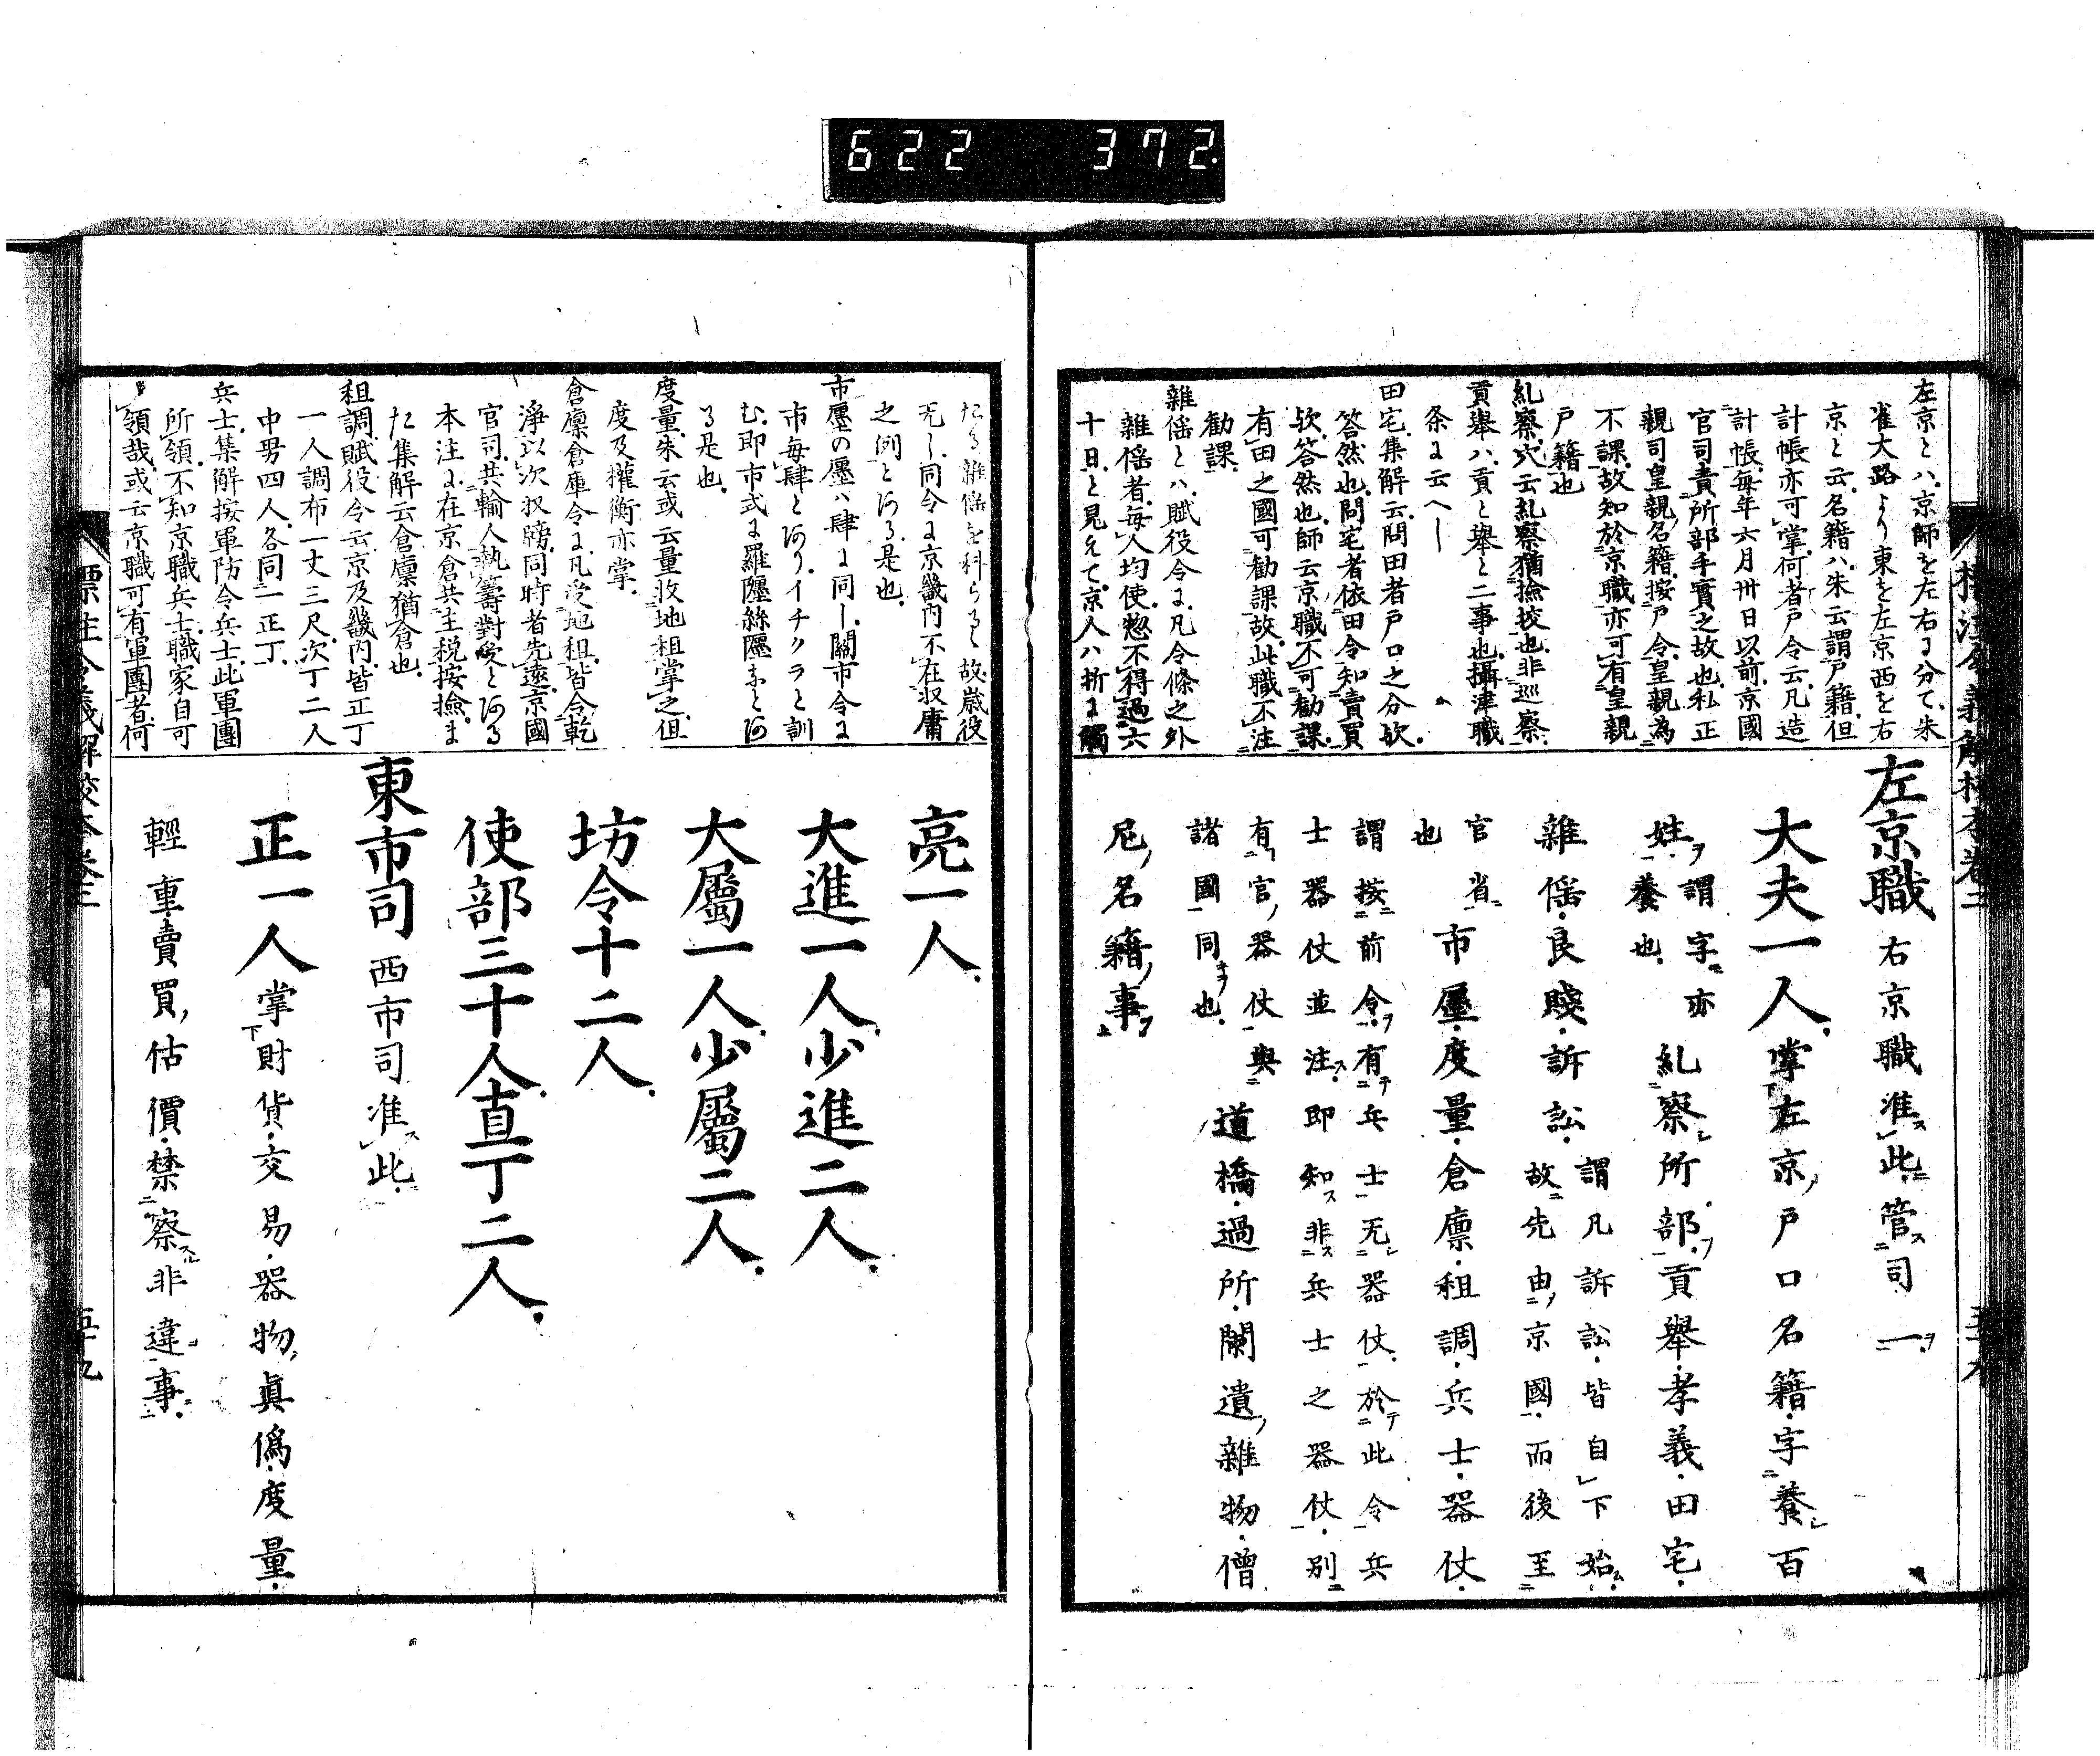 622 372
左京とハ京師を左右に分て朱
雀大路より東を左京西を右
京と云名籍ハ朱云謂戸籍但
計帳亦可掌何者戸令云凡造
計帳毎年六月卅日以前京國
官司責所部手實之故也私正
親司皇親名籍按戸令皇親為
不課故知於京職亦可有皇親
戸籍也
糺察穴云糺察猶撿挍也非巡察
貢舉ハ貢と舉と二事也攝津職
条に云へし
田宅集解云問田者戸口之分欤
答然也問宅者依田令知賣買
欤答然也師云京職不可勧課
有田之國可勧課故此職不注
勧課
雜徭とハ賦役令に凡令條之外
雜徭者毎人均使惣不得過六
十日と見えて京人ハ折に觸
左京職 右京職准此管司一
大夫一人掌左京戸口名籍字養百
姓謂字亦養也糺察所部貢舉孝義田宅
雜徭良賤訴訟謂凡訴訟皆自下始故先由京國而後至
官省也市廛度量倉廪租調兵士器仗
謂按前令有兵士无器仗於此令兵
士器仗並注即知非兵士之器仗別
有官器仗與
諸國同也道橋過所闌遺雜物僧
尼名籍事
たる雜徭を科らるゝ故歳役
无し同令に京畿内不在収庸
之例とある是也
市廛の廛ハ肆に同し關市令に
市毎肆とありイチクラと訓
む即市式に羅廛絲廛なとあ
る是也
度量朱云或云量收地租掌之但
度及權衡亦掌
倉廪倉庫令に凡受地租皆令乾
淨以次収牓同時者先遠京國
官司共輸人執籌對受とある
本注に在京倉共主税按撿ま
た集解云倉廪猶倉也
租調賦役令云京及畿内皆正丁
一人調布一丈三尺次丁二人
中男四人各同一正丁
兵士集解按軍防令兵士此軍團
所領不知京職兵士職家自可
領哉或云京職可有軍團者何
亮一人
大進一人少進二人
大屬一人少屬二人
坊令十二人
使部三十人直丁二人
東市司 西市司准此
正一人掌財貨交易器物眞僞度量
輕重賣買估價禁察非違事